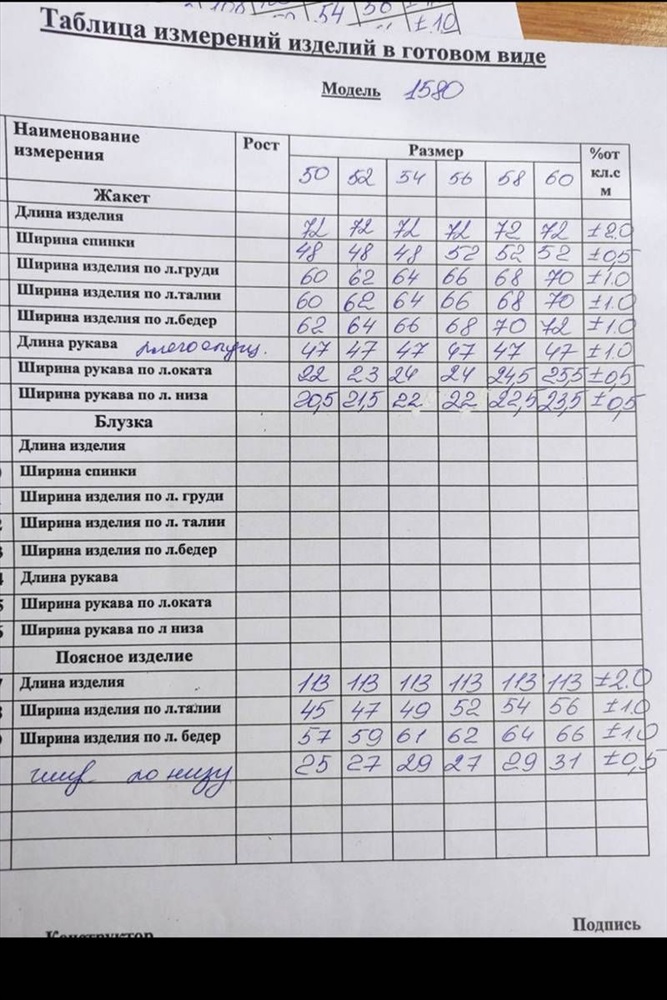 54 56
±1.0
Таблица измерений изделий в готовом виде
Модель 1580
Наименование измерения Рост Размер %от кл.с м
50 52 54 56 58 60
Жакет
Длина изделия 72 72 72 72 72 72 ±2.0
Ширина спинки 48 48 48 52 52 52 ±0,5
Ширина изделия по л.груди 60 62 64 66 68 70 ±1.0
Ширина изделия по л.талии 60 62 64 66 68 70 ±1.0
Ширина изделия по л.бедер 62 64 66 68 70 72 ±1.0
Длина рукава 47 47 47 47 47 47 ±1.0
Ширина рукава по л.оката 22 23 24 24 24,5 25,5 ±0,5
Ширина рукава по л. низа 20,5 21,5 22 22 22,5 23,5 ±0,5
Блузка
Длина изделия
Ширина спинки
Ширина изделия по л. груди
Ширина изделия по л. талии
Ширина изделия по л.бедер
Длина рукава
Ширина рукава по л.оката
Ширина рукава по л низа
Поясное изделие
Длина изделия 113 113 113 113 113 113 ±2.0
Ширина изделия по л.талии 45 47 49 52 54 56 ±1.0
Ширина изделия по л. бедер 57 59 61 62 64 66 ±1.0
по низу 25 27 29 27 29 31 ±0,5
Подпись
Конструктор